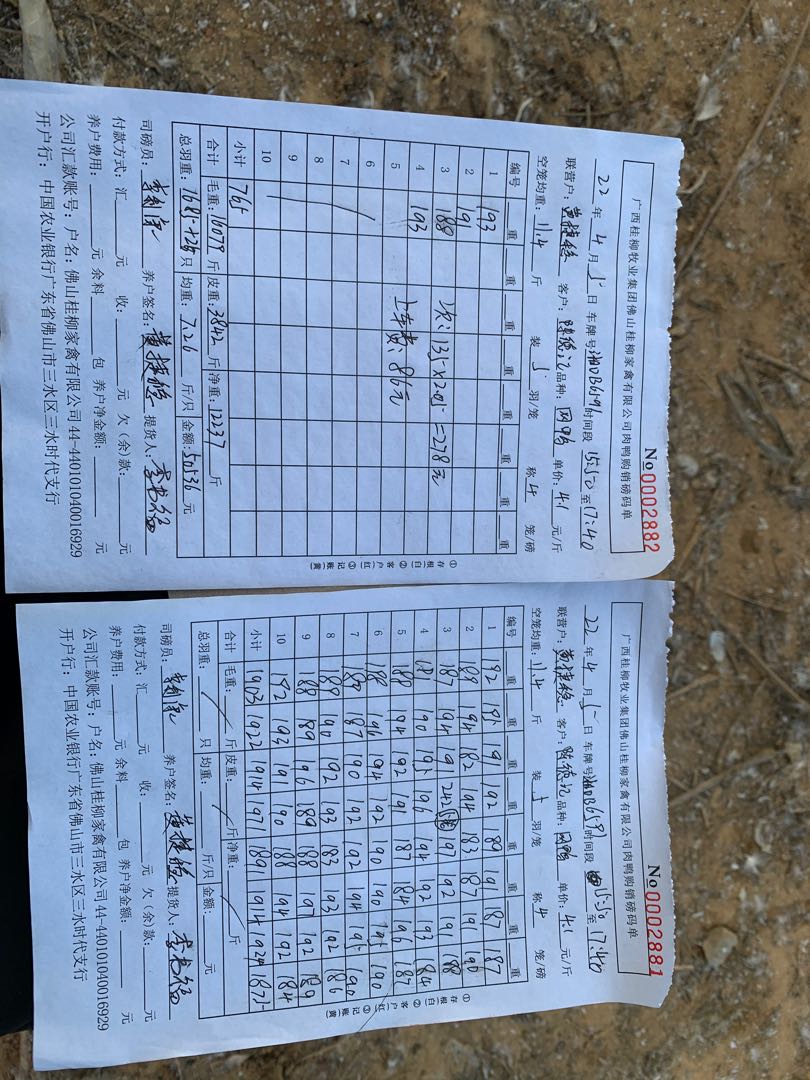 No 0002882
广西桂柳牧业集团佛山桂柳家禽有限公司肉鸭购销磅码单
22年4月5日 车牌号湘DB6596 时间段15:50至17:40
联营户：黄捷稳 客户：陈德记 品种：网鸭 单价：4.1元/斤
空笼均重：11.4斤 装5羽/笼 称4笼/磅
编号 重 重 重 重 重 重 重 重
1 193
2 191
3 188 次：135×2.06=278元
4 193 上车费：86元
5
6
7
8
9
10
小计 765
合计 毛重：16079斤 皮重：3842斤 净重：12237斤
总羽重：1685+25只 均重：7.26斤/只 金额：50536元
司磅员： 养户签名：黄捷稳 提货人：
付款方式：汇 元 收： 元 欠（余）款： 元
养户费用： 元 余料 包 养户净金额： 元
公司汇款账号：户名：佛山桂柳家禽有限公司44-440101040016929
开户行：中国农业银行广东省佛山市三水区三水时代支行
①存根（白） ②客户（红） ③记账（黄）
No 0002881
广西桂柳牧业集团佛山桂柳家禽有限公司肉鸭购销磅码单
22年4月5日 车牌号湘DB659 时间段15:50至17:40
联营户：黄捷稳 客户：陈德记 品种：网鸭 单价：4.1元/斤
空笼均重：11.4斤 装5羽/笼 称4笼/磅
编号 重 重 重 重 重 重 重 重
1 192 195 191 192 189 191 187 187
2 189 194 182 194 183 187 191 190
3 187 194 191 242 197 192 191 188
4 190 195 196 194 192 193 184
5 188 194 192 191 187 184 196 187
6 188 196 194 192 190 190 195 190
7 189 187 190 192 192 194 195 190
8 189 190 192 193 183 193 192 186
9 188 189 196 189 188 197 192 189
10 192 193 191 190 188 194 192 184
小计 1903 1922 1914 1971 1891 1914 1924 1875
合计 毛重： 斤 皮重： 斤 净重： 斤
总羽重： 只 均重： 斤/只 金额： 元
司磅员： 养户签名：黄捷稳 提货人：
付款方式：汇 元 收： 元 欠（余）款： 元
养户费用： 元 余料 包 养户净金额： 元
公司汇款账号：户名：佛山桂柳家禽有限公司44-440101040016929
开户行：中国农业银行广东省佛山市三水区三水时代支行
①存根（白） ②客户（红） ③记账（黄）